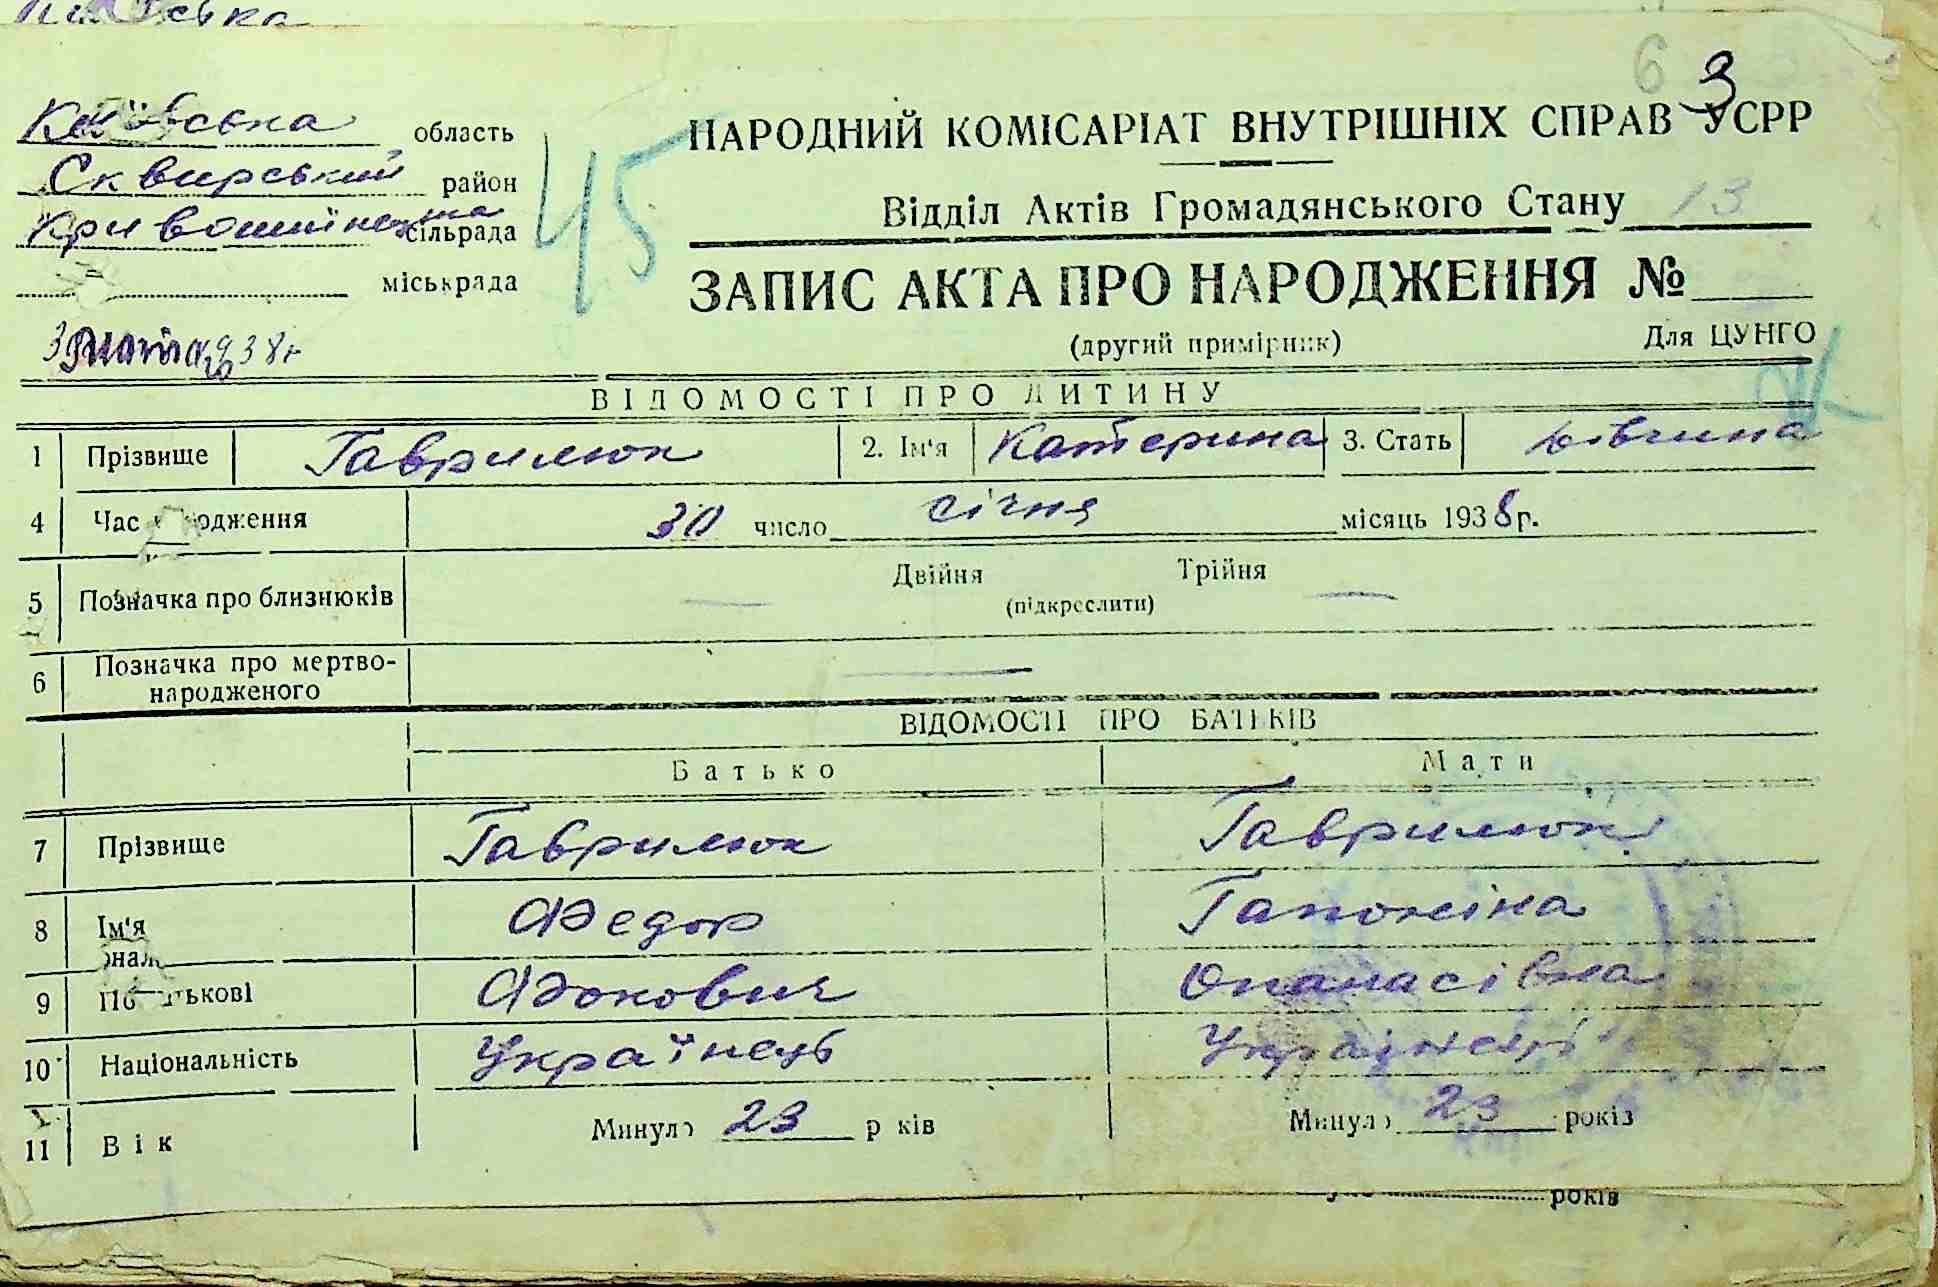 6 3
Київська область
НАРОДНИЙ КОМІСАРІАТ ВНУТРІШНІХ СПРАВ УСРР
Сквирський район
45
Відділ Актів Громадянського Стану 13
Кривошиїнецька сільрада
міськрада
ЗАПИС АКТА ПРО НАРОДЖЕННЯ №
3 лютого 1938 г
(другий примірник)
Для ЦУНГО
ВІДОМОСТІ ПРО ДИТИНУ
1 Прізвище Гаврилюк 2. Ім'я Катерина 3. Стать дівчина
4 Час народження 30 число січня місяць 1938 р.
5 Позначка про близнюків — Двійня Трійня —
(підкреслити)
6 Позначка про мертво-
народженого —
ВІДОМОСТІ ПРО БАТЬКІВ
Батько Мати
7 Прізвище Гаврилюк Гаврилюк
8 Ім'я Федор
9 По батькові Опанасівна
10 Національність Українець
11 Вік Минуло 23 років Минуло 23 років
років